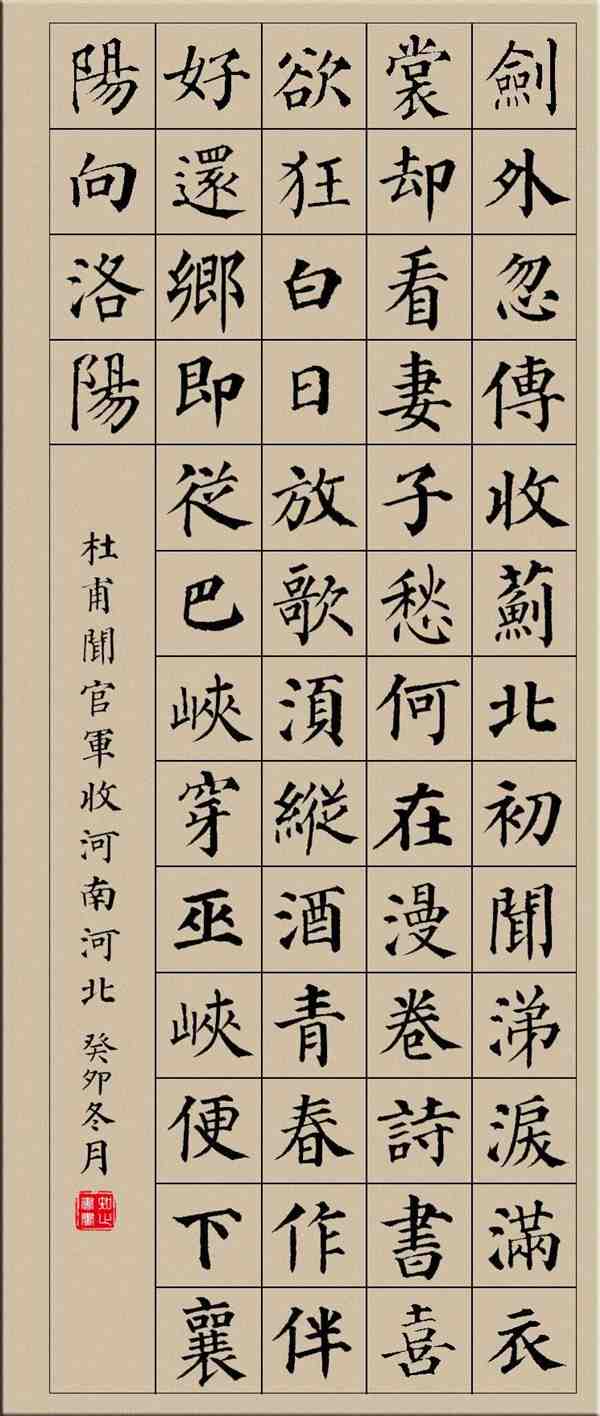 劍外忽傳收薊北初聞涕淚滿衣
裳却看妻子愁何在漫卷詩書喜
欲狂白日放歌須縱酒青春作伴
好還鄉即從巴峽穿巫峽便下襄
陽向洛陽
杜甫聞官軍收河南河北 癸卯冬月